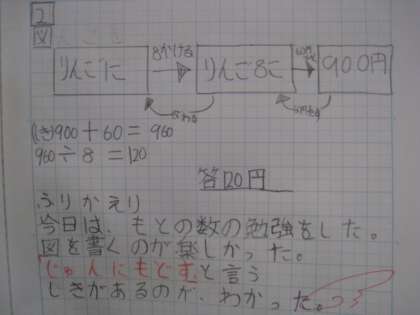 2
図
りんご1こ
8かける
りんご8こ
900円
(しき)900+60=960
960÷8=120
答120円
ふりかえり
今日は、もとの数の勉強をした。
図を書くのが楽しかった。
じゅんにもどすと言う
しきがあるのが、わかった。